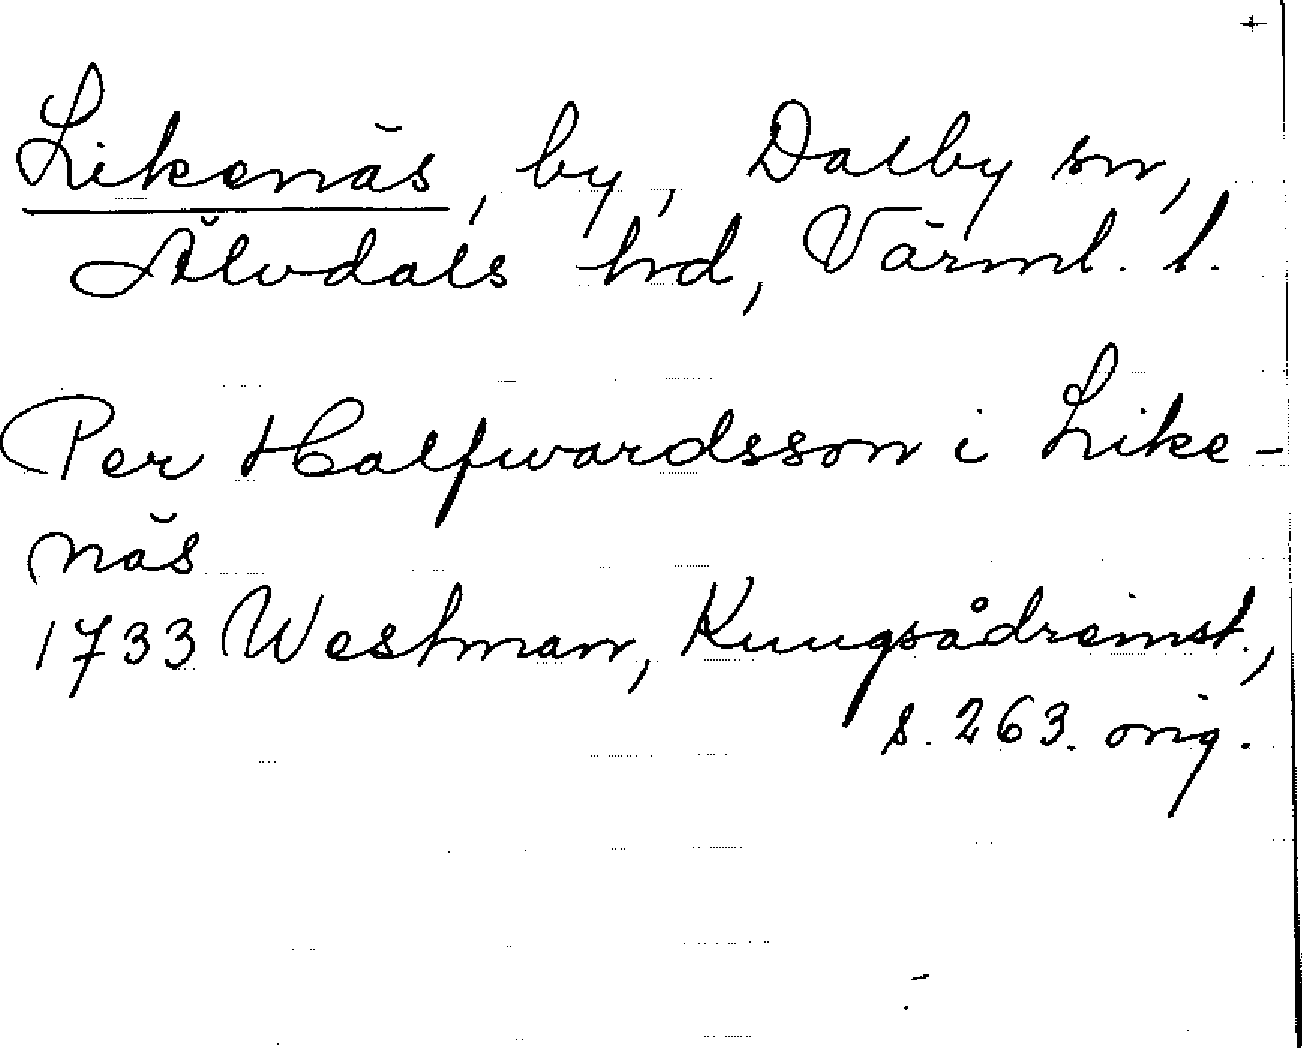 +
Likenäs, by, Dalby sn,
Älvdals hd, Värml. l.
Per Halfwardsson i Like-
näs
1733 Westman, Kungsådreinst.,
s. 263. orig.